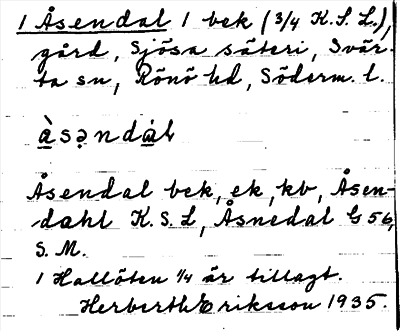 1 Åsendal 1 bek (3/4 K.S.L.),
gård, Sjösa säteri, Svär-
ta sn, Rönö hd, Söderm. l.
àsəndàl
Åsendal bek, ek, kb, Åsen-
dahl K.S.L, Åsnedal G 56,
S.M.
1 Hallöten 1/4 är tillagt.
Herberth Eriksson 1935.